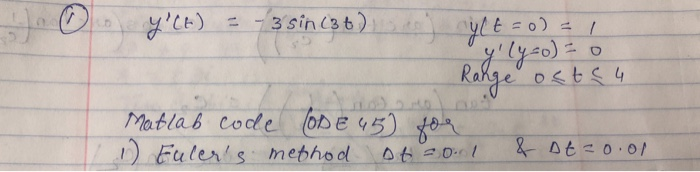 1 y'(t) = -3 sin(3t) y(t=0) = 1
y'(y=0) = 0
Range 0 ≤ t ≤ 4
Matlab code (ODE 45) for
1) Euler's method Δt = 0.1 & Δt = 0.01